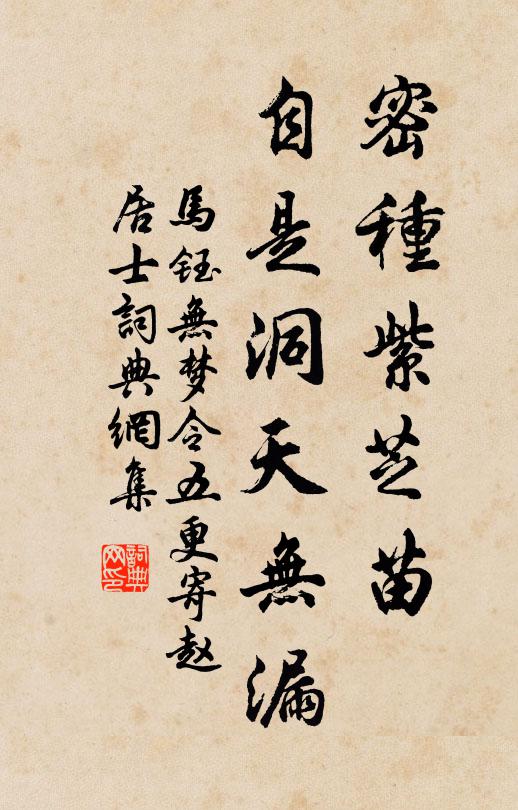 密種紫芝苗
自是洞天無漏
馬鈺無梦令五更寄赵
居士詞典網集
詞典
网印